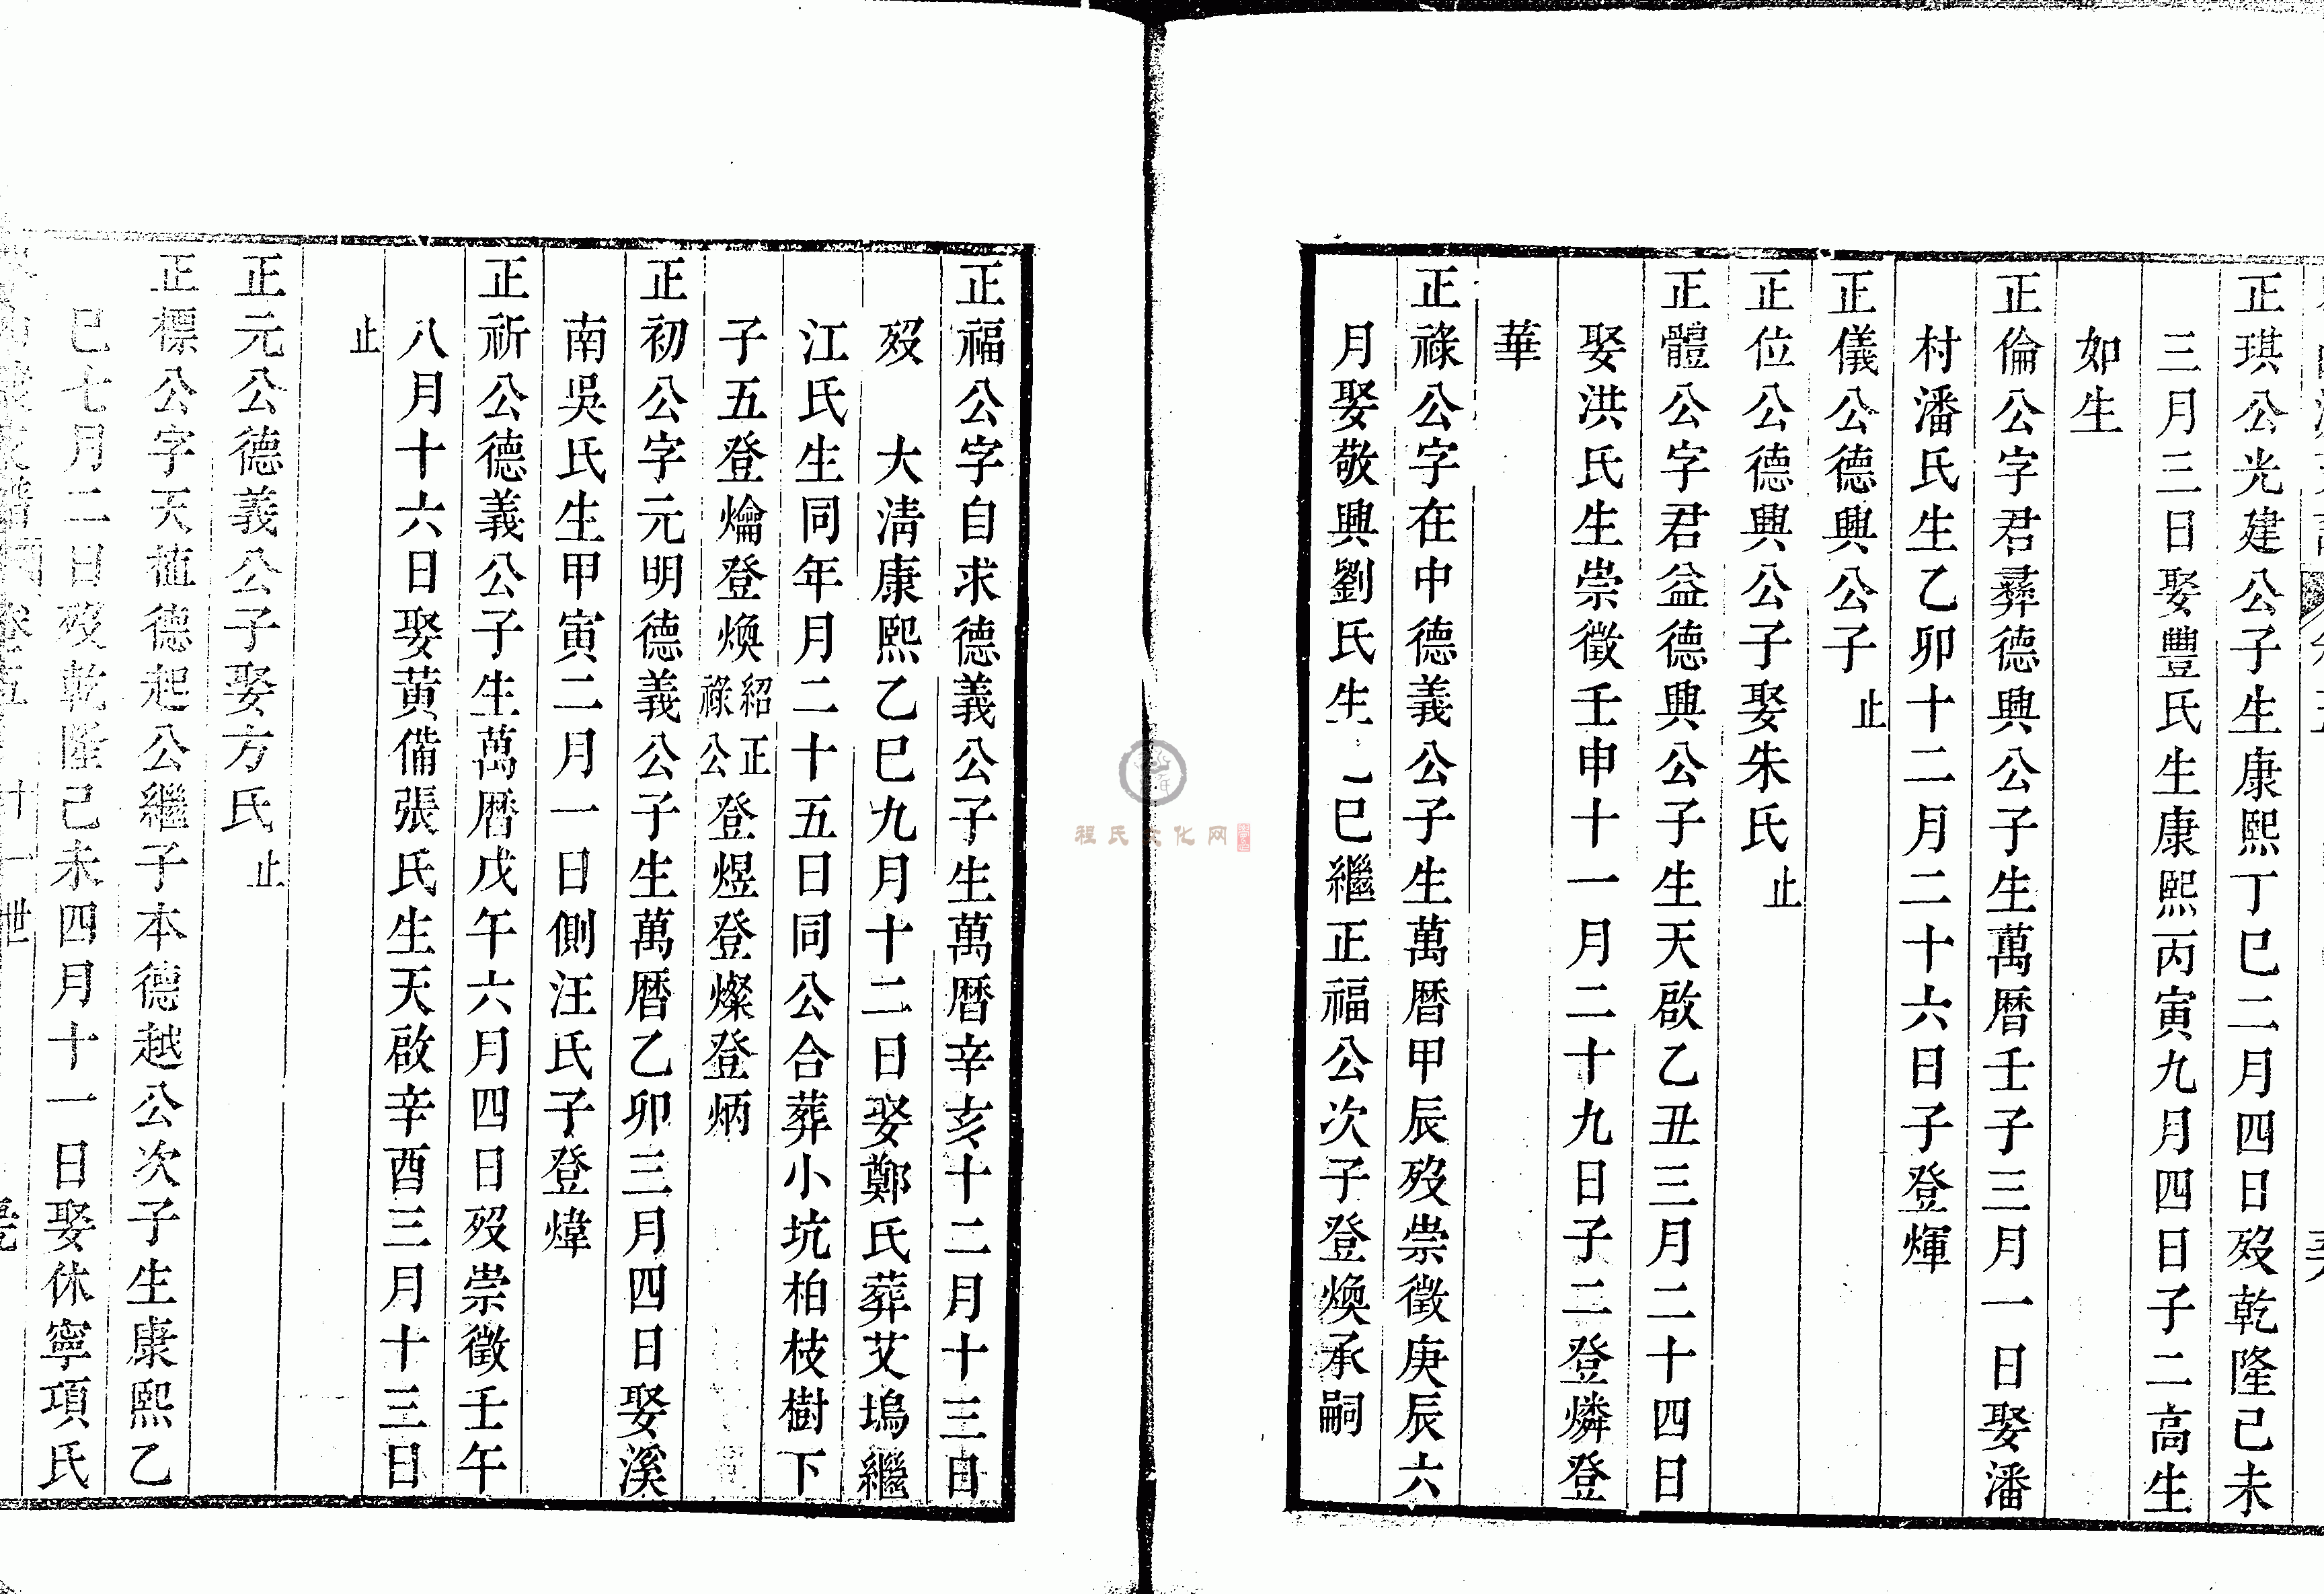 正琪公光建公子生康熙丁巳二月四日歿乾隆己未
三月三日娶豐氏生康熙丙寅九月四日子二高生
如生
正倫公字君彝德興公子生萬曆壬子三月一日娶潘
村潘氏生乙卯十二月二十六日子登煇
正儀公德興公子止
正位公德興公子娶朱氏止
正體公字君益德興公子生天啟乙丑三月二十四日
娶洪氏生崇徵壬申十一月二十九日子二登燐登
華
正祿公字在中德義公子生萬曆甲辰歿崇徵庚辰六
月娶敬興劉氏生巳繼正福公次子登煥承嗣
正福公字自求德義公子生萬曆辛亥十二月十三日
歿 大清康熙乙巳九月十二日娶鄭氏葬艾塢繼
江氏生同年月二十五日同公合葬小坑柏枝樹下
子五登爚登煥紹正祿公登煜登燦登炳
正初公字元明德義公子生萬曆乙卯三月四日娶溪
南吳氏生甲寅二月一日側汪氏子登煒
正祈公德義公子生萬曆戊午六月四日歿崇徵壬午
八月十六日娶黃備張氏生天啟辛酉三月十三日
止
正元公德義公子娶方氏止
正標公字天植德起公繼子本德越公次子生康熙乙
巳七月二日歿乾隆己未四月十一日娶休寧項氏
卷五 十一世
程氏文化网